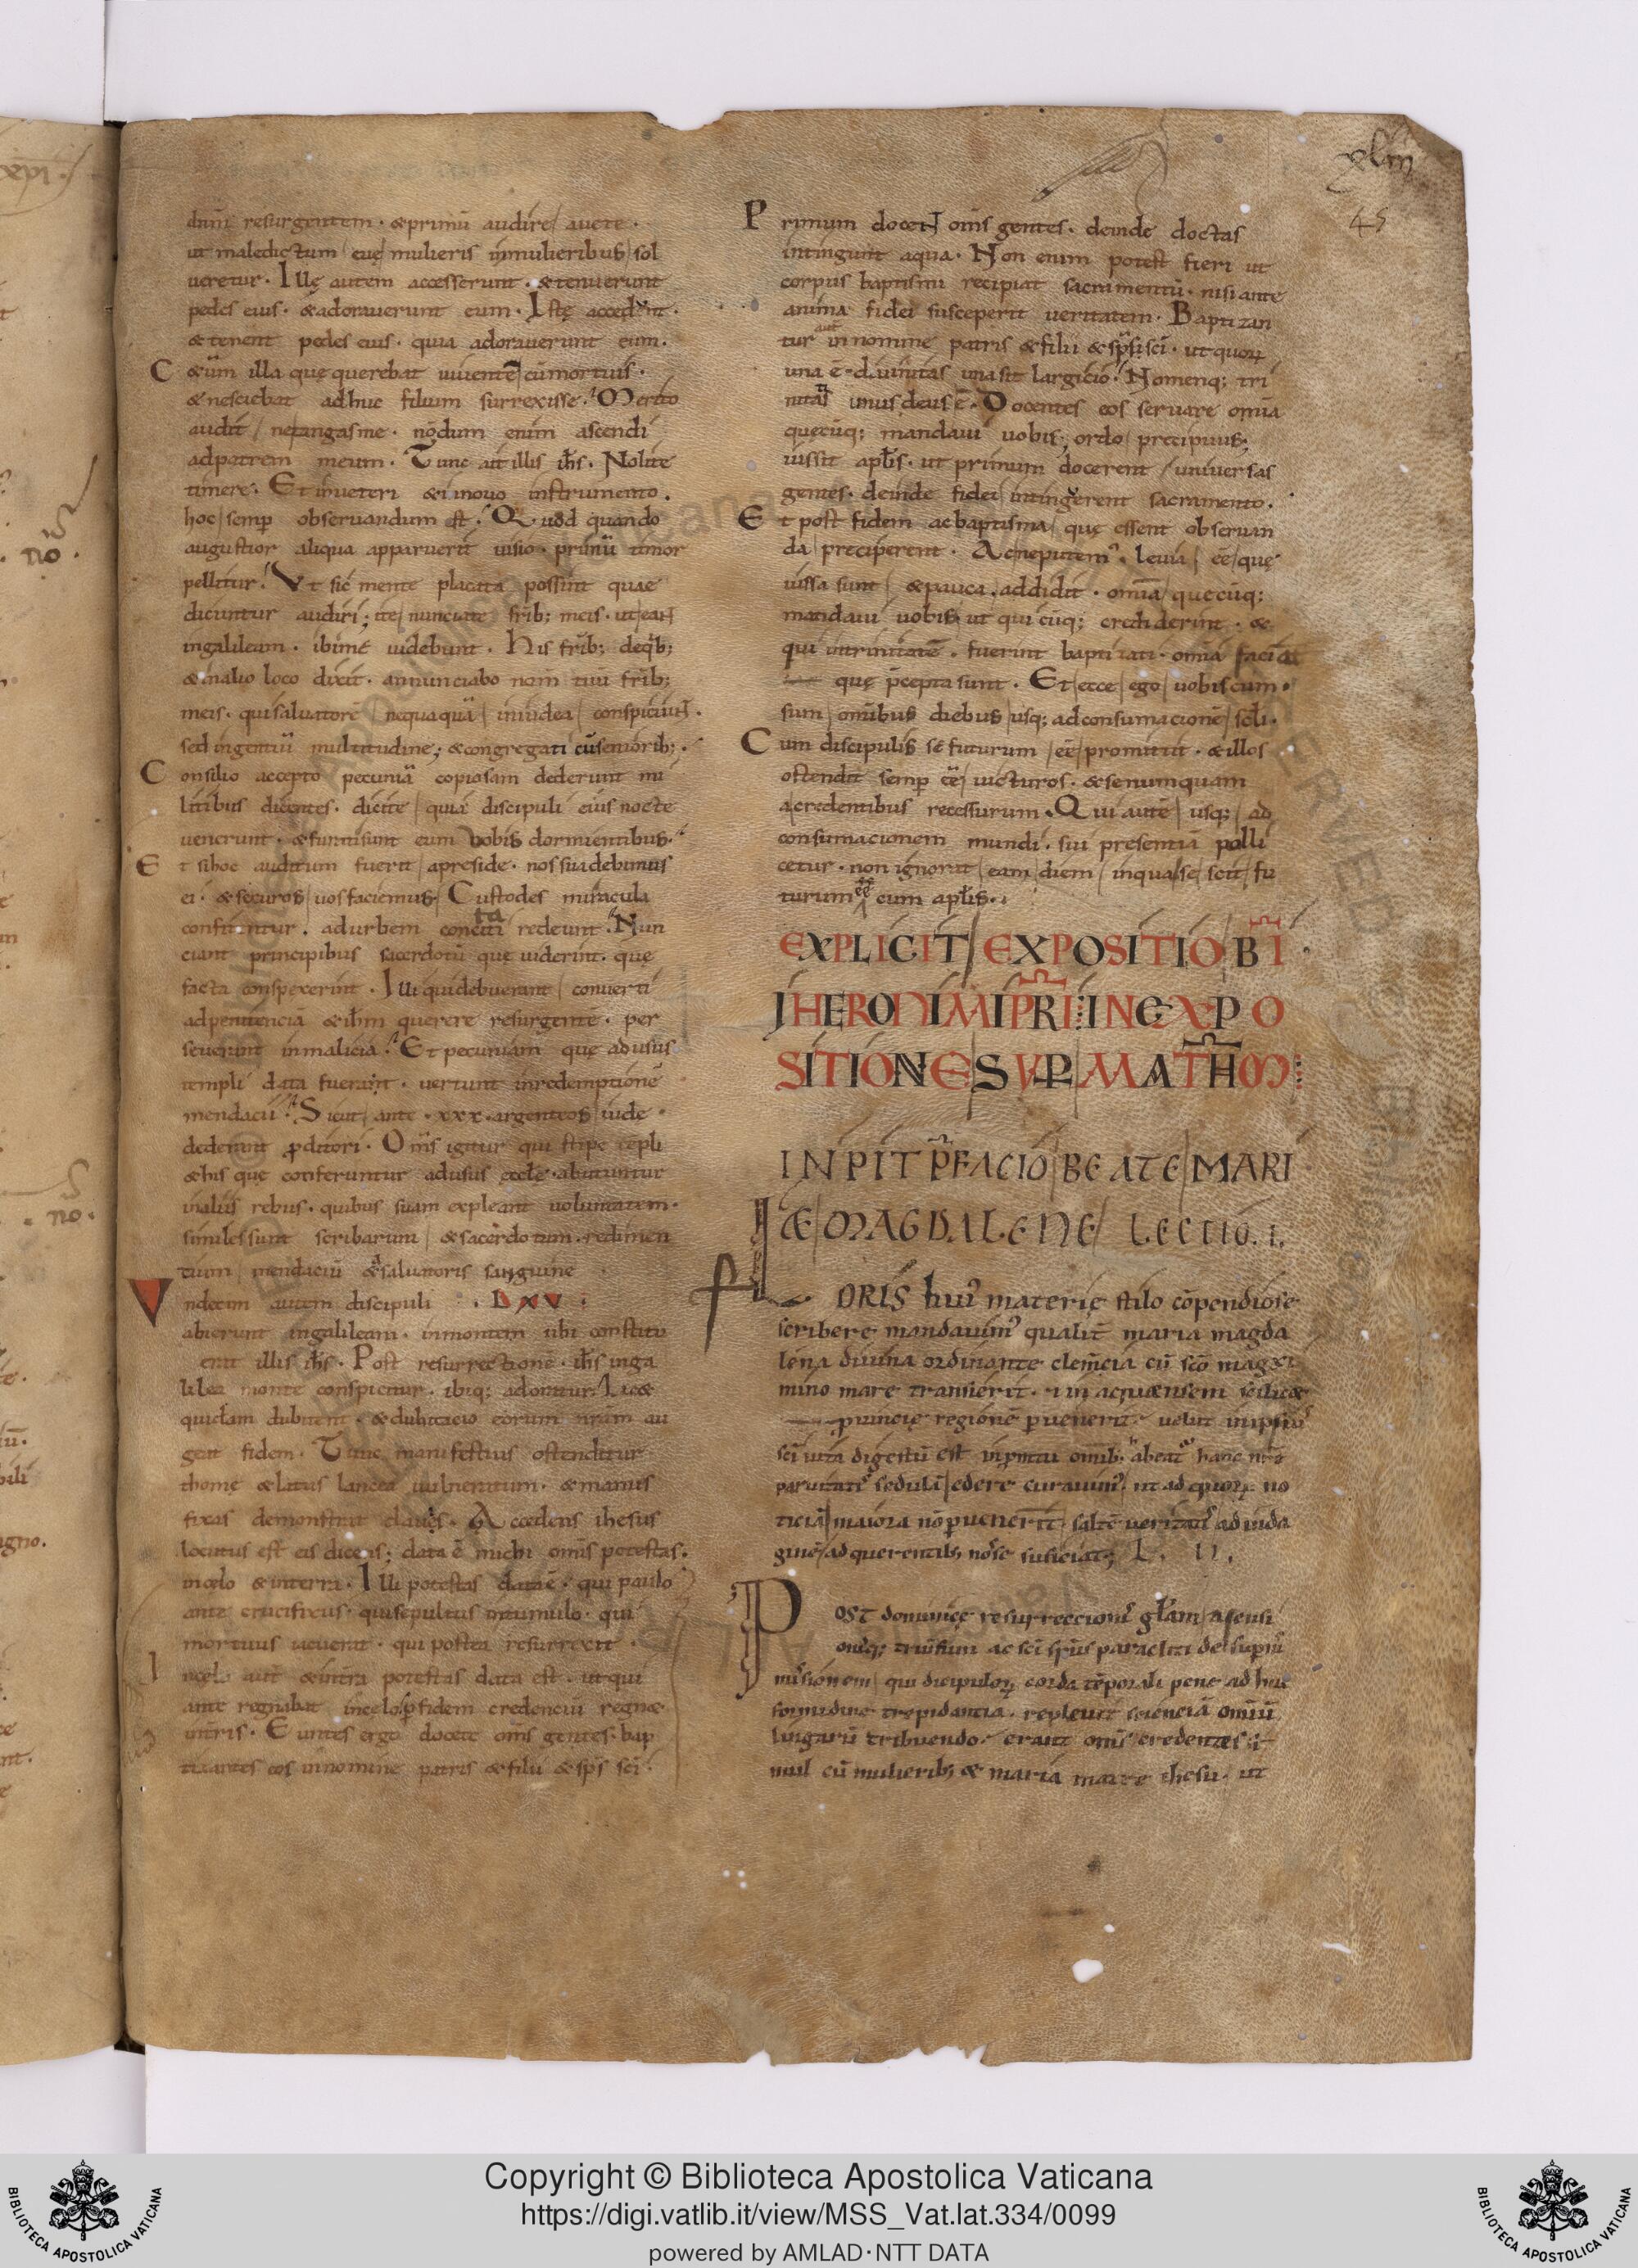 xlııı
45
dnm̄ resurgentem · & primū audire / aucte ·
ut maledictum euę mulieris inmulieribus sol
ueretur · Illę autem accesserunt · & tenuerunt
pedes eius · & adorauerunt eum · Istę accedunt ·
& tenent pedes eius · quia adorauerunt eum ·
C &ūm illa que querebat uiuentē cū mortuis ·
& nesciebat adhuc filium surrexisse · Merito
audit / netangasme · nōdum enim ascendi
adpatrem meum · Tunc ait illis ihs̄ · Nolite
timere · Et inueteri & innouo instrumento ·
hoc semp obseruandum est · Quod quando
augustior aliqua apparuerit uisio · primū timor
pellitur · Vt sic mente placata possint quae
dicuntur audiri ; ite nunciate frīb; meis · ut eant
ingalileam · ibimē uidebunt · His frīb; deqb;
& inalio loco dixit · annunciabo nom̄ tuū frīb;
meis · qui saluatorē nequaquā iniudea conspiciunt ·
sed ingentiū multitudine ; & congregati cū seniorib; ·
Consilio accepto pecuniā copiosam dederunt mi
litibus dicentes · dicite quia discipuli eius nocte
uenerunt · & furati sunt eum uobis dormientibus ·
Et sihoc auditum fuerit apreside · nos suadebimus
ei · & securos uos faciemus / Custodes miracula
confitentur · adurbem conciti redeunt · Nun
ciant principibus sacerdotū que uiderint · que
facta conspexerint · Illi qui debuerant conuerti
adpenitenciā & ihm̄ querere resurgentē · per
seuerant inmalicia · Et pecuniam que adusus
templi data fuerant · uertunt inredemptionē
mendacii · Sicut ante · xxx · argenteos iude
dederunt pditori · Om̄s igitur qui stipe tepli
& his que conferuntur adusus eccle · abutuntur
inaliis rebus · quibus suam expleant uoluntatem ·
similes sunt scribarum & sacerdotum · redimen
tium mendaciū & saluatoris sanguine
Vndecim autem discipuli · LXV ·
abierunt ingalileam · inmontem ubi constitu
erat illis ihs̄ · Post resurrectionē · ihs̄ inga
lilea monte conspicitur · ibiq; adoratur · Lic&
quidam dubitent · & dubitacio eorum nr̄am au
get fidem · Tunc manifestius ostenditur
thome & latus lancea uulneratum · & manus
fixas demonstrat clauis · Accedens ihesus
locutus est eis dicens ; data ē michi om̄is potestas ·
incelo & interra · Illi potestas data ē · qui paulo
ante crucifixus · qui sepultus intumulo · qui
mortuus iacuerat · qui postea resurrexit ·
Incelo aut̄ & intra potestas data est · ut qui
ante regnabat incelo · p fidem credenciū regn&
intris · Euntes ergo docete om̄s gentes · bap
tizantes eos innomine patris & filii & sp̄s sc̄i ·
Primum docent om̄s gentes · deinde doctas
intingunt aqua · Non enim potest fieri ut
corpus baptismi recipiat sacramentū · nisi ante
anima fidei susceperit ueritatem · Baptizan
tur aut̄ in nomine patris & filii & sp̄s sc̄i · ut quoꝝ
una ē diuinitas una sit largicio · Nomenq; tri
nitatis unus deus ē · Docentes eos seruare omia
quecūq; mandaui uobis ; ordo precipuus ;
iussit apl̄is · ut primum docerent uniuersas
gentes · deinde fidei intingerent sacramento ·
Et post fidem ac baptisma que essent obseruan
da preciperent · Ac ne putem᾽ · leuia ēē que
iussa sunt & pauca · addidit · omīa quecūq;
mandaui uobis · ut qui cūq; crediderint · &
qui intrinitatē · fuerint baptizati · omīa faciāt
que pcepta sunt · Et ecce ego uobiscum ·
sum omībus diebus usq; ad consumacionē sc̄li ·
Cum discipulis sē futurum ēē promittit · & illos
ostendit semp ēē uicturos · & senumquam
acredentibus recessurum · Qui autē usq; ad
consumacionem mundi · sui presentiā polli
cetur · non ignorat eam diem inqua se scit fu
turum ēē cum apl̄is ·
EXPLICIT EXPOSITIO BI ·
IHERONIMI PRI : IN EXPO
SITIONE SVP MATHM
INPIT PFACIO BEATE MARI
Æ MAGDALENE LECTIO · I ·
FLORIS hui᾽ materie stilo cōpendiose
scribere mandauim᾽ qualit̄ maria magda
lena diuina ordinante clemēcia cū scō maxi
mino mare transierit · & in acquensem scilic&
puincie regionē puenerit · uelut in ipsius
sc̄i uita digestū est
ticiā maiora nō puenerīt saltē ueritatis ad inda
ginē ad querentib; nosse suficiat ; L · II ·
Post dominice resurreccionis gl̄am ascensi
onisq; triūfum ac sc̄i sp̄us paracliti de supnis
missionem qui dicipuloꝝ corda tēporali pene ad huc
formidine trepidantia · repleuit scienciā omiū
linguarū tribuendo · erant om̄s credentes si
mul cū mulierib; & maria matre ihesu · ut
no̅ ·
no ·
Copyright © Biblioteca Apostolica Vaticana
https://digi.vatlib.it/view/MSS_Vat.lat.334/0099
powered by AMLAD·NTT DATA
BIBLIOTECA APOSTOLICA VATICANA
BIBLIOTECA APOSTOLICA VATICANA